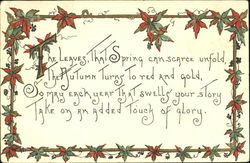 The Leaves, that Spring can scarce unfold,
The Autumn turns to red and gold,
So may each year that swells your story
Take on an added Touch of glory.